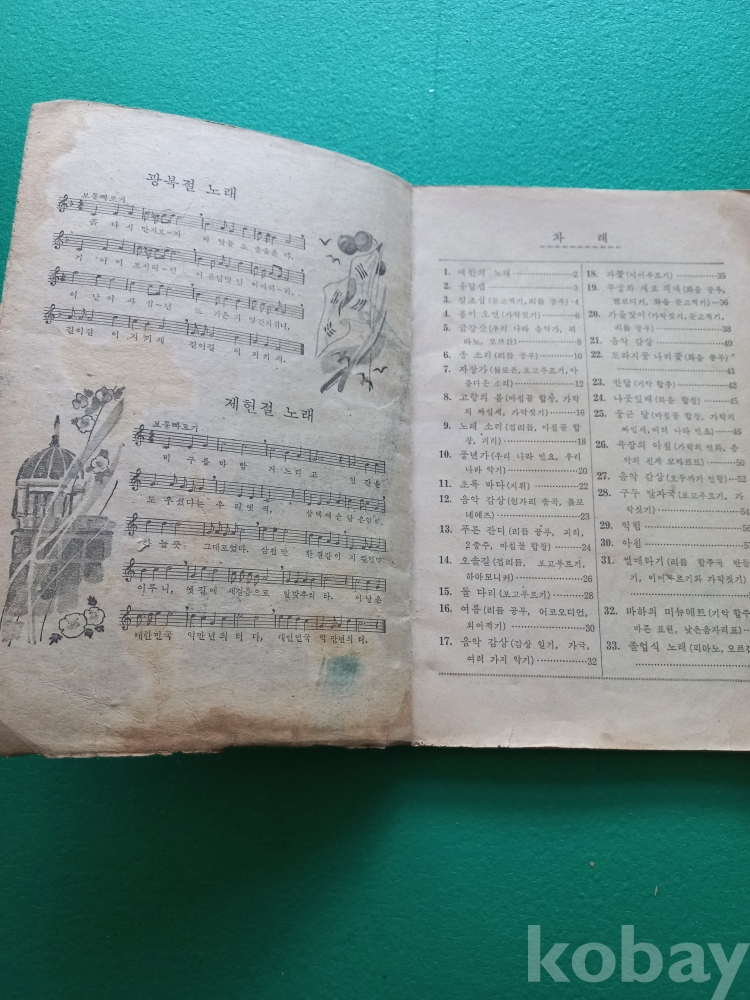 광복절 노래
보통빠르기
흙 다시 만져보~자 바 닷물 도 춤을춘 다.
기 어이 보시려~던 어 른님벗님 어이하리.
이 날이 사 십~년 뜨 거운피 엉긴자취니
길이길 이 지키세 길이길 이 지키세.
제헌절 노래
보통빠르기
비 구름 바람 거느리고 인간을
도우셨다는 우리옛적,
삼백예순남은일이
하늘뜻 그대로였다. 삼천만 한결같이 지킬언약
이루니, 옛길에 새걸음으로 발맞추리라, 이날은
대한민국 억만년의 터 다, 대한민국 억만년의 터.
차 례
1. 대한의 노래 2
2. 옹달샘 3
3. (음교적기, 리듬 공부) 4
4. 봄이 오면 (가락짓기) 6
5. 금강산 (우리 나라 음악가, 피아노, 오르간) 8
6. 종 소리 (리듬 공부) 10
7. 자장가 (실로폰, 보고부르기, 아름다운 소리) 12
8. 고향의 봄 (마침꼴 합창, 가락의 짜임새, 가락짓기) 16
9. 노래 소리 (겹리듬, 마침꼴 합창, 피리) 18
10. 풍년가 (우리 나라 민요, 우리 나라 악기) 20
11. 초록 바다 (지휘) 22
12. 음악 감상 23
13. 푸른 잔디 (리듬 공부, 피리, 2중주, 마침꼴 합창) 24
14. 오솔길 (겹리듬, 보고부르기, 하아모니카) 26
15. 돌 다리 (보고부르기) 28
16. 여름 (리듬 공부, 어코오디언, 외어적기) 30
17. 음악 감상 (감상 일기, 가극, 여러 가지 악기) 32
18. 과꽃 (이어부르기) 35
19. 36
20. 가을맞이 (가락짓기, 듣고적기, 리듬 공부) 38
21. 음악 감상 40
22. 도라지꽃 나리꽃 (화음 공부) 41
23. 반달 (기악 합주) 42
24. 나뭇잎배 (화음 합창) 45
25. 둥근 달 (마침꼴 합창, 가락의 짜임새, 여러 나라 민요) 46
26. 목장의 아침 50
27. 음악 감상 (호두까기 인형) 53
28. 구두 발자국 (보고부르기, 가락짓기) 54
29. 익힘 56
30. 아침 57
31. 썰매타기 (리듬 합주곡 만들기, 이어부르기와 가락짓기)
32. 바하의 미뉴에트 (기악 합주, 바른 표현, 낮은음자리표)
33. 졸업식 노래 (피아노, 오르간
kobay